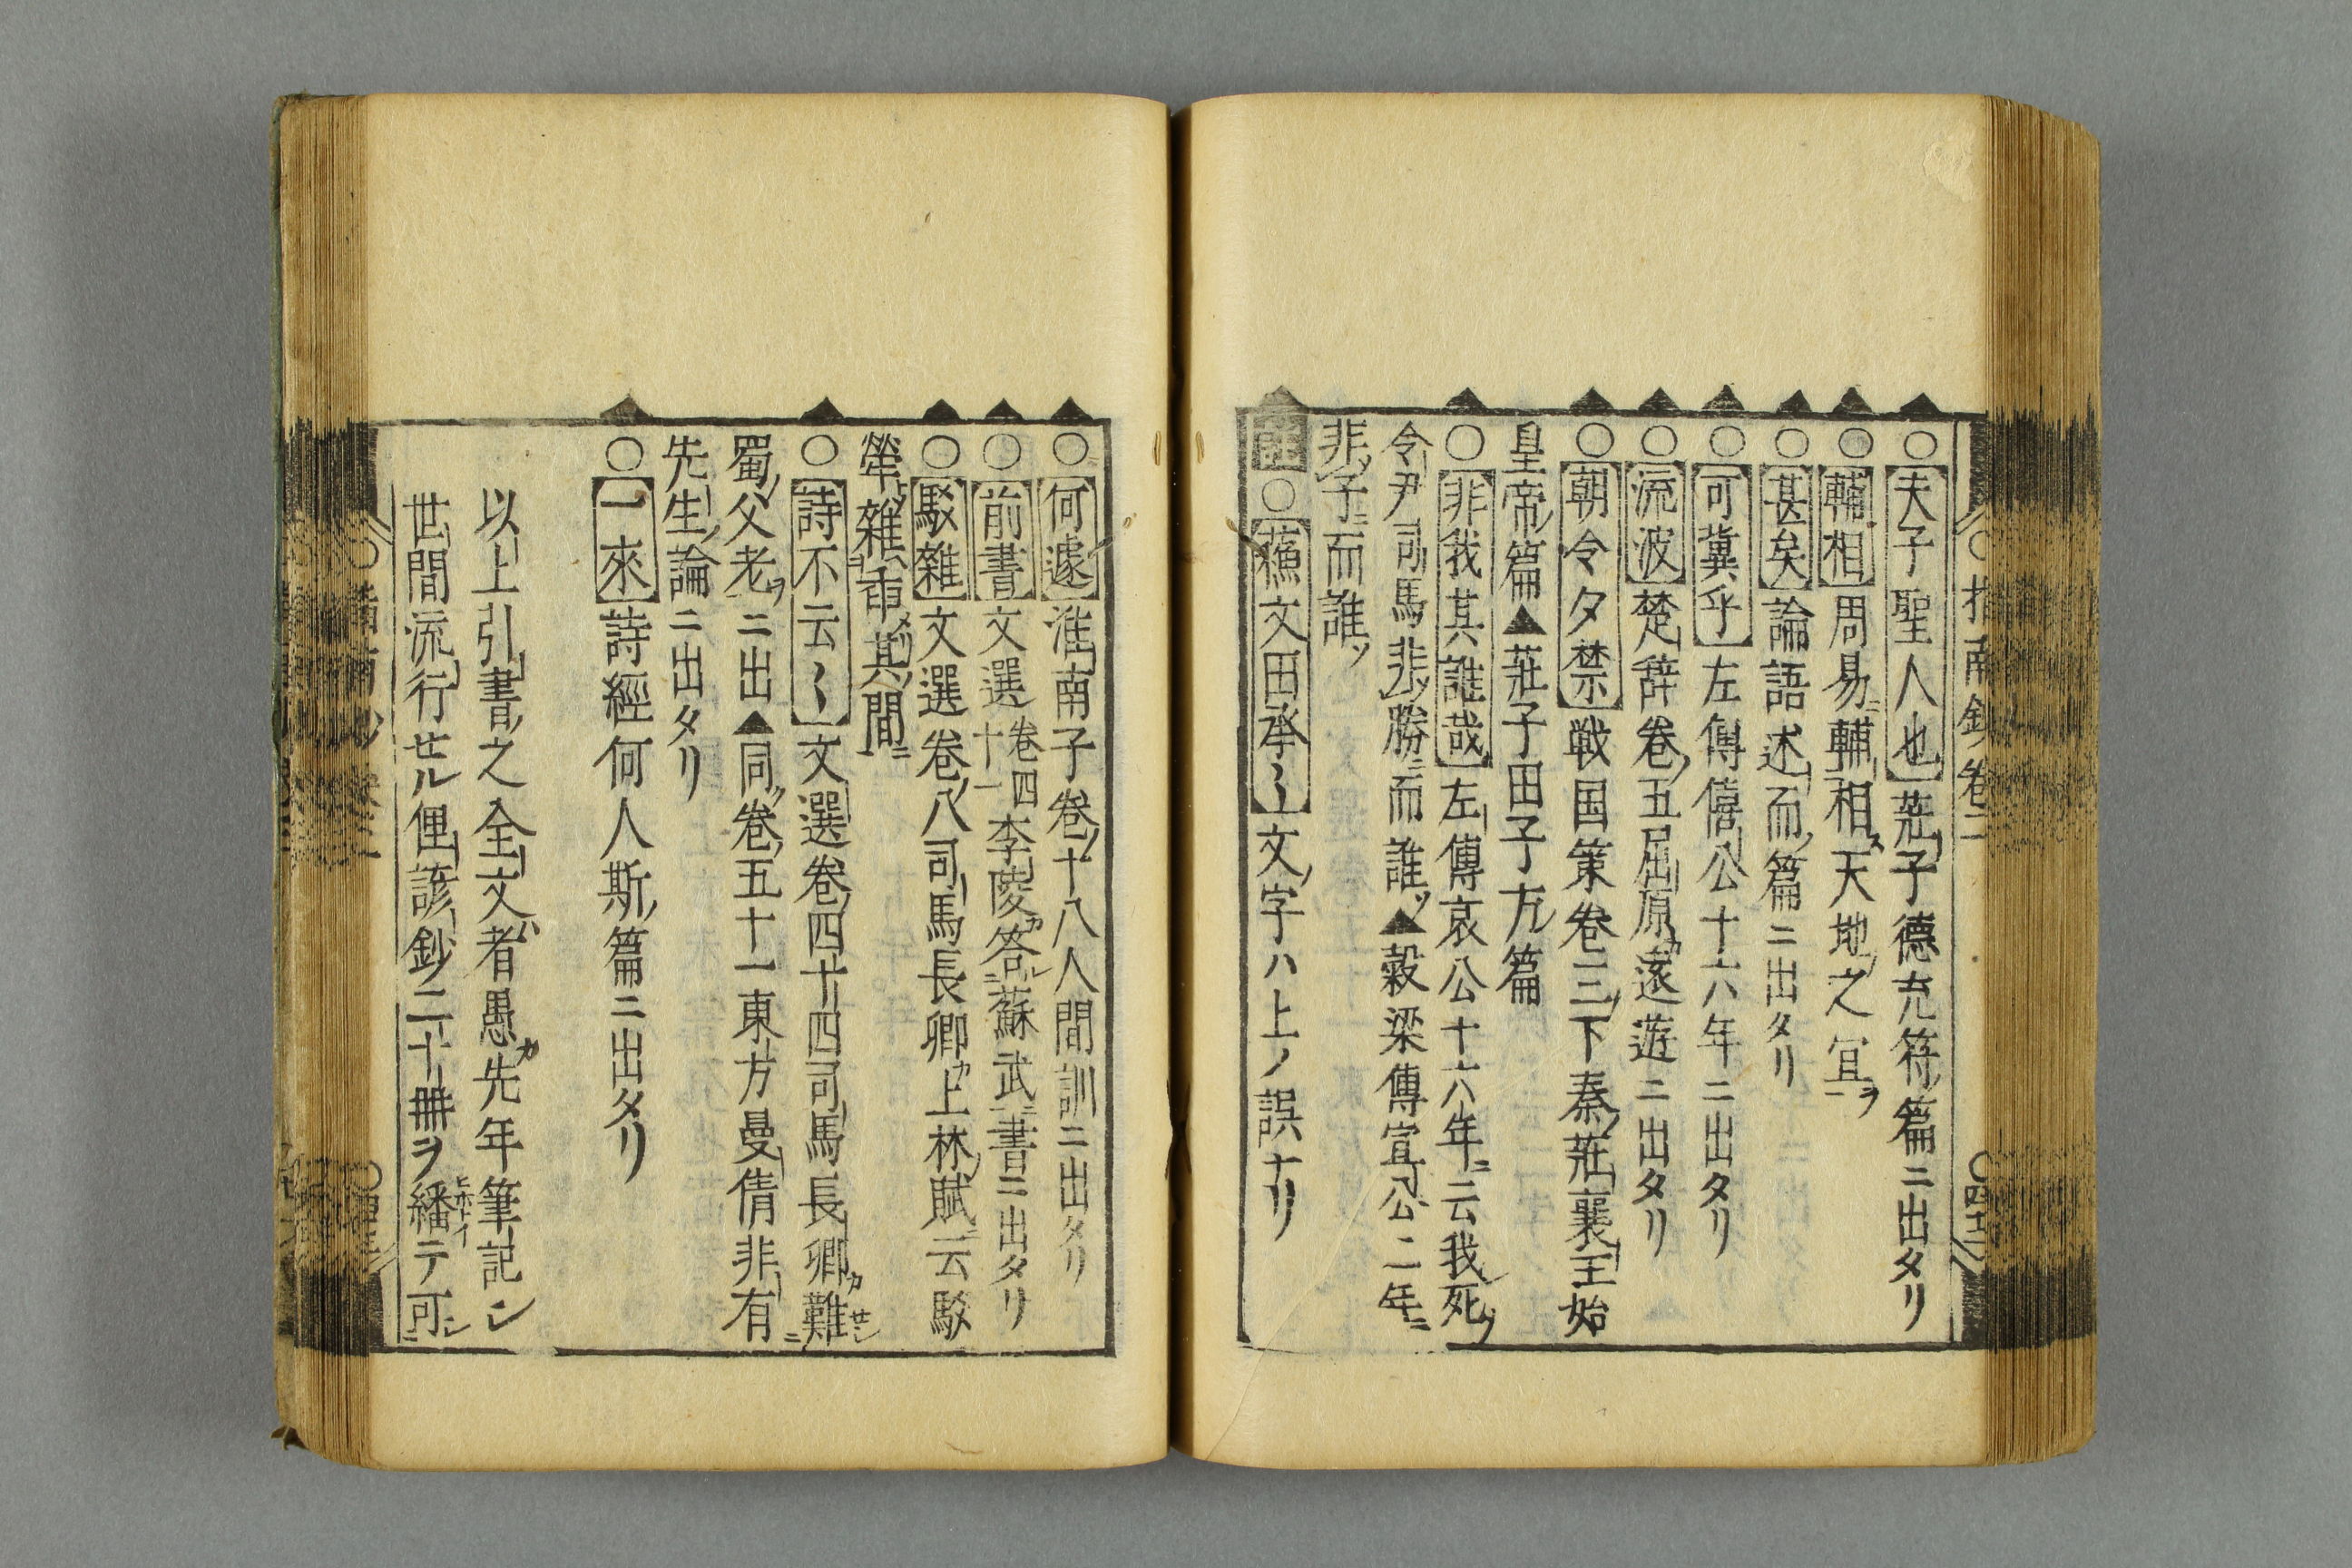 ○夫子聖人也 莊子德充符篇ニ出タリ
○輔相 周易ニ輔相ス天地ノ之冝ヲ
○甚矣 論語述而ノ篇ニ出タリ
○可冀乎 左傳僖公十六年ニ出タリ
○流波 楚辞巻ノ五屈原カ遠遊ニ出タリ
○朝令夕禁 戦国策巻三ノ下秦ノ莊襄王始
皇帝ノ篇▲莊子田子方ノ篇
○非我其誰哉 左傳哀公十六年ニ云我死ソ
令尹司馬非ソ勝ニ而誰ソ▲穀梁傳宣公二年ニ
非ソ子ニ而誰ソ
註○蕉文田承〱 文ノ字ハ上ノ誤ナリ
○何遽 淮南子巻ノ十八人間訓ニ出タリ
○前書 文選巻四十一李陵カ答ル蘇武ニ書ニ出タリ
○駁雜 文選巻ノ八司馬長卿カ上林ノ賦ニ云駁
犖雜臿其ノ間ニ
○詩不云〱 文選巻ノ四十四司馬長卿カ難セシ
蜀ノ父老ヲニ出▲同ノ巻ノ五十一東方曼倩非有
先生ノ論ニ出タリ
○一來 詩經何人斯ノ篇ニ出タリ
以上引書ノ之全文ハ者愚カ先年筆記シ
世間流行セル俚諺鈔二十冊ヲ繙ヒホトイテ可シ